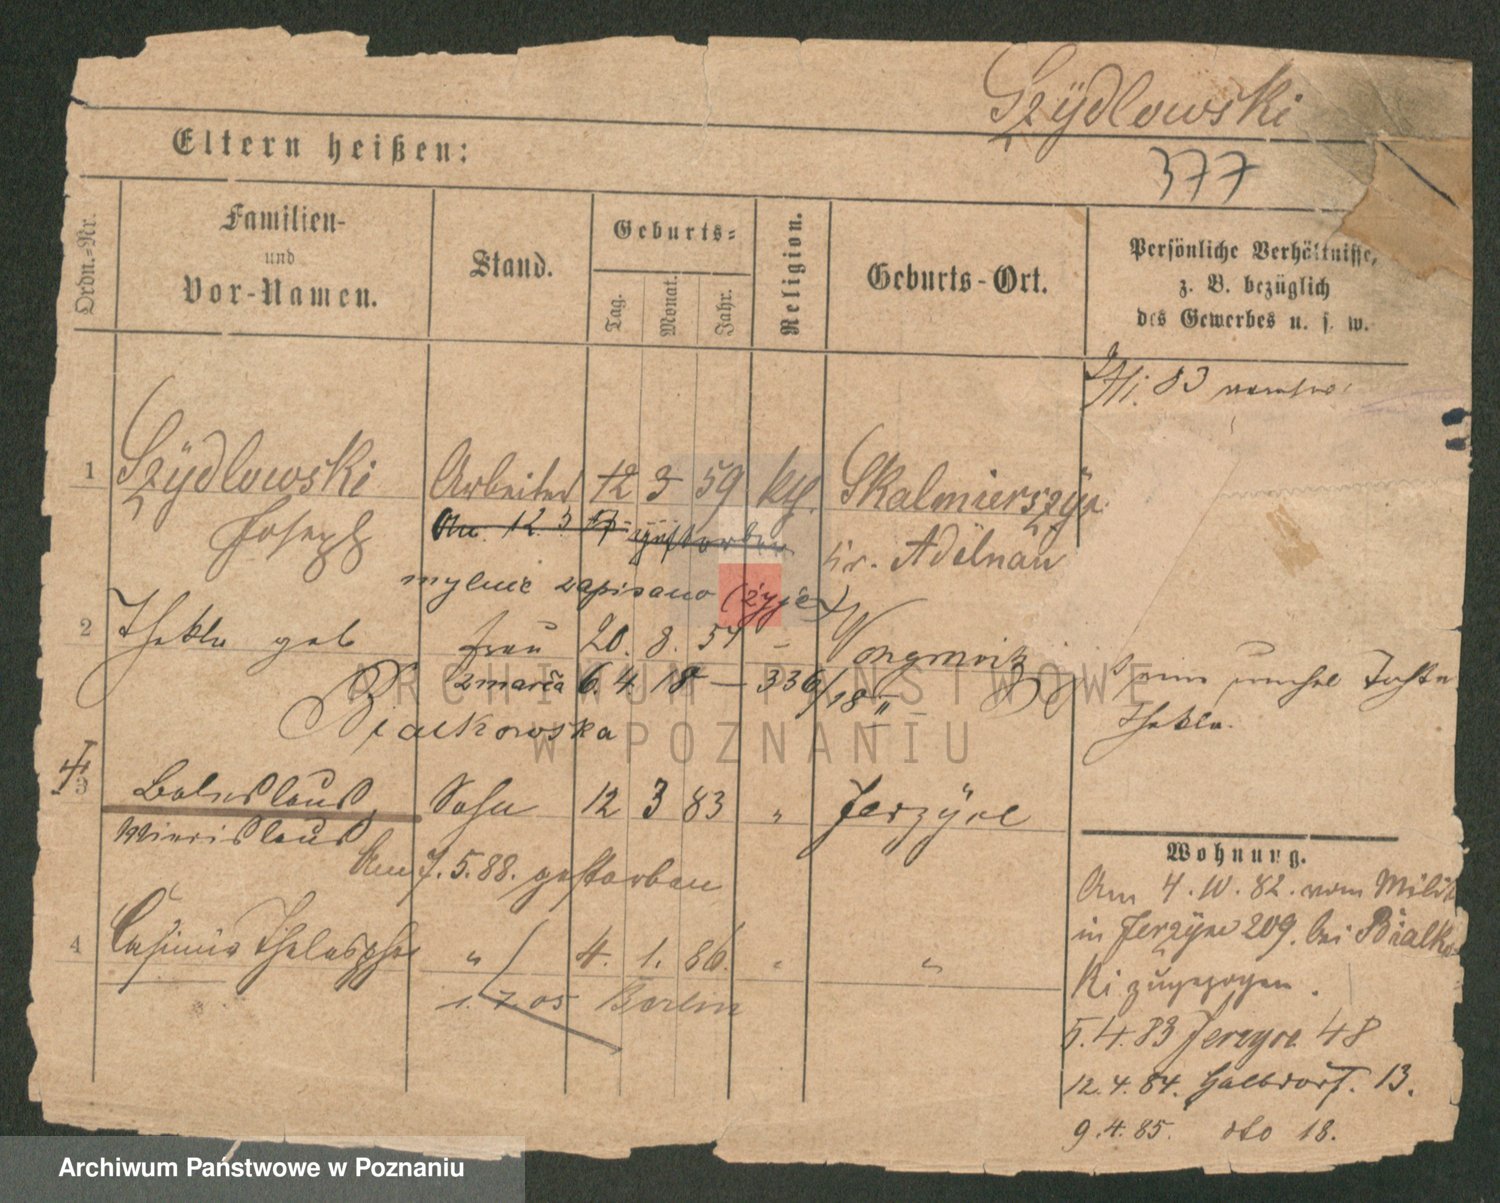 Szÿdlowski
377
Eltern heißen:
Ordn.-Nr.
Familien-
und
Vor-Namen.
Stand.
Geburts-
Tag.
Monat.
Jahr.
Religion.
Geburts-Ort.
Persönliche Verhältnisse,
z. B. bezüglich
des Gewerbes u. s. w.
83
1 Szÿdlowski Arbeiter 12 3 59 kth. Skalmierszÿc
Joseph Am 12. 3 gestorben Kr. Adelnau
mylnie zapisano (żyje)
2 Thekla geb frau 20. 8. 57 - Wongrowitz
zmarła 6. 4. 18 — 336/18
Bialkowska
Tochter
Thekla.
3 Boleslaus Sohn 12 3 83 " Jerzÿce
Am 7. 5. 88. gestorben
4 Casimir Thelesphor " 4. 1. 86. " "
1. 7. 05 Berlin
Wohnung.
Am 4. 10. 82. vom Milit
in Jerzÿce 209. bei Bialko
ki zugezogen.
5. 4. 83 Jerzyce 48
12. 4. 84. Halbdorf. 13.
9. 4. 85. dto 18.
ARCHIWUM PAŃSTWOWE
W POZNANIU
Archiwum Państwowe w Poznaniu